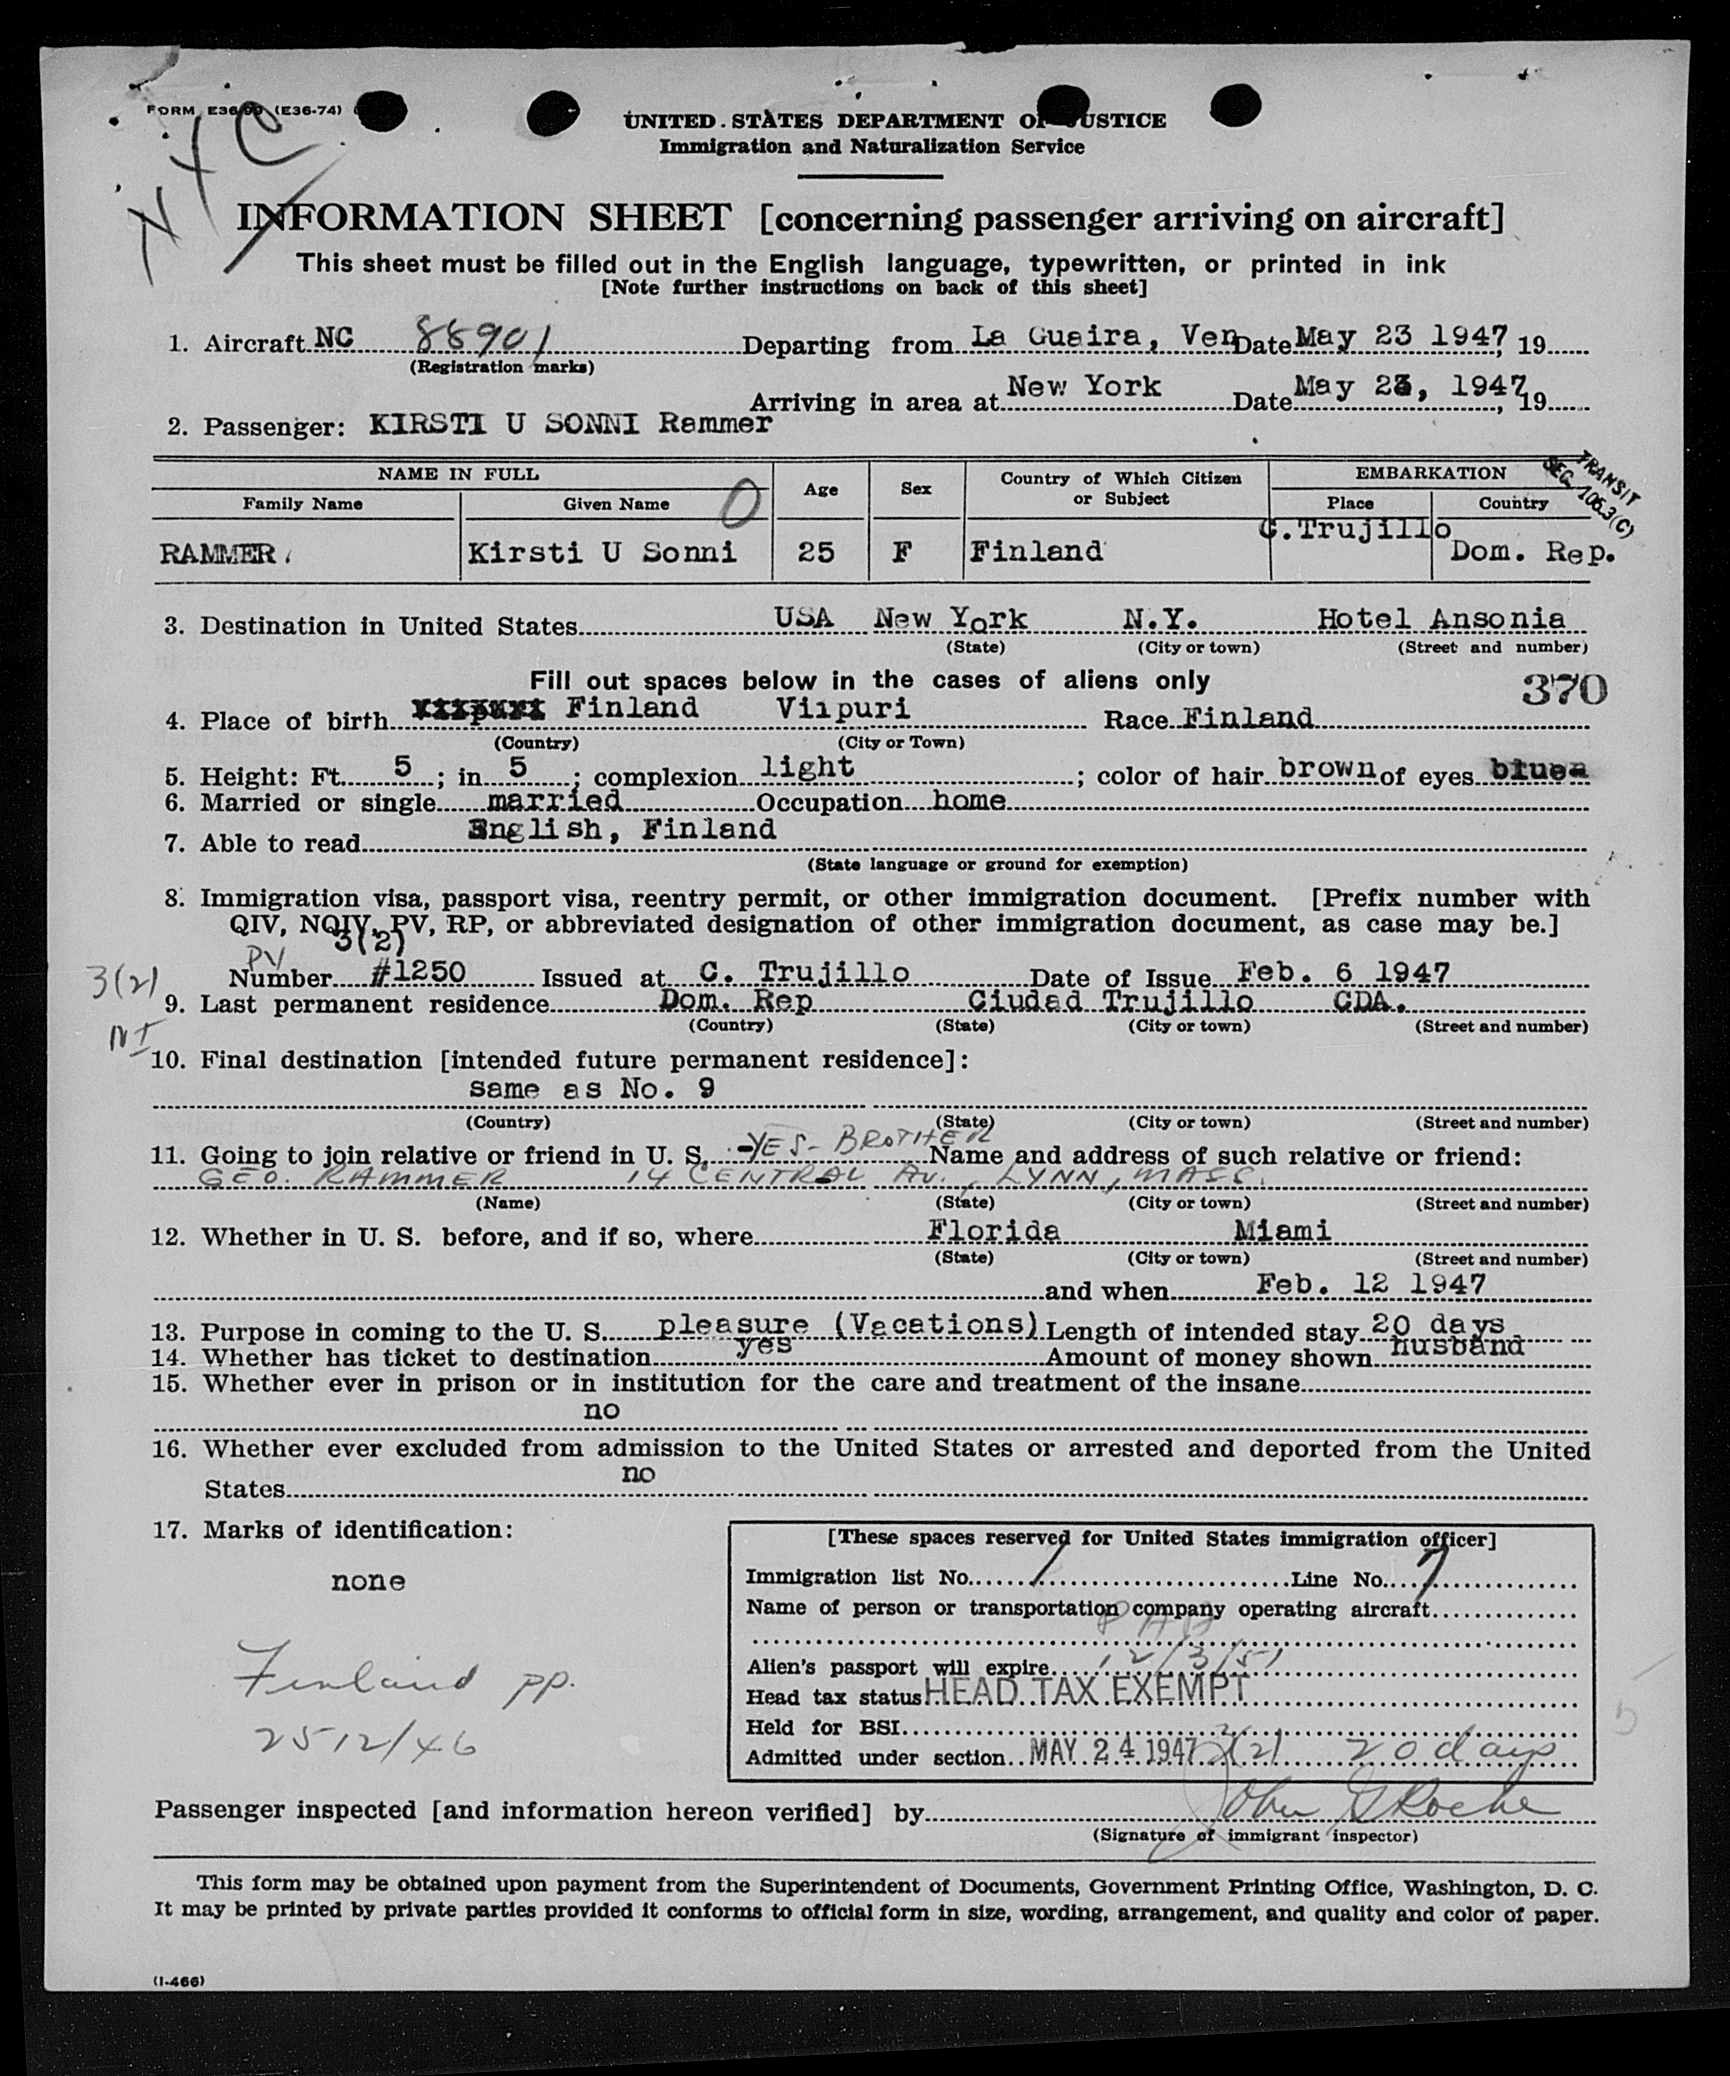 FORM E36 (E36-74)
NYC
UNITED STATES DEPARTMENT OF JUSTICE
Immigration and Naturalization Service
INFORMATION SHEET [concerning passenger arriving on aircraft]
This sheet must be filled out in the English language, typewritten, or printed in ink
[Note further instructions on back of this sheet]
1. Aircraft NC 88901 Departing from La Guaira, Ven Date May 23 1947, 19
(Registration marks)
Arriving in area at New York Date May 23, 1947, 19
2. Passenger: KIRSTI U SONNI Rammer
NAME IN FULL Age Sex Country of Which Citizen or Subject EMBARKATION
TRANSIT SEC. 105.3(C)
Family Name Given Name O Place Country
RAMMER. Kirsti U Sonni 25 F Finland C.Trujillo Dom. Rep.
3. Destination in United States USA New York N.Y. Hotel Ansonia
(State) (City or town) (Street and number)
Fill out spaces below in the cases of aliens only
370
4. Place of birth Finland Viipuri Race Finland
(Country) (City or Town)
5. Height: Ft. 5; in 5; complexion light; color of hair brown of eyes blue
6. Married or single married Occupation home
7. Able to read English, Finland
(State language or ground for exemption)
8. Immigration visa, passport visa, reentry permit, or other immigration document. [Prefix number with
QIV, NQIV, PV, RP, or abbreviated designation of other immigration document, as case may be.]
PV 3(2)
3(2) Number #1250 Issued at C. Trujillo Date of Issue Feb. 6 1947
9. Last permanent residence Dom. Rep Ciudad Trujillo CDA.
(Country) (State) (City or town) (Street and number)
NI
10. Final destination [intended future permanent residence]:
same as No. 9
(Country) (State) (City or town) (Street and number)
11. Going to join relative or friend in U. S. -YES- BROTHER Name and address of such relative or friend:
GEO. RAMMER 14 CENTRAL AV., LYNN, MASS.
(Name) (State) (City or town) (Street and number)
12. Whether in U. S. before, and if so, where Florida Miami
(State) (City or town) (Street and number)
and when Feb. 12 1947
13. Purpose in coming to the U. S. pleasure (Vacations) Length of intended stay 20 days
14. Whether has ticket to destination yes Amount of money shown husband
15. Whether ever in prison or in institution for the care and treatment of the insane
no
16. Whether ever excluded from admission to the United States or arrested and deported from the United
States no
17. Marks of identification:
none
Finland pp.
2512/46
[These spaces reserved for United States immigration officer]
Immigration list No. 1 Line No. 7
Name of person or transportation company operating aircraft
PAA
Alien's passport will expire 12/3/51
Head tax status HEAD TAX EXEMPT
Held for BSI
Admitted under section MAY 24 1947 3(2) 20 days
Passenger inspected [and information hereon verified] by John G Roche
(Signature of immigrant inspector)
This form may be obtained upon payment from the Superintendent of Documents, Government Printing Office, Washington, D. C.
It may be printed by private parties provided it conforms to official form in size, wording, arrangement, and quality and color of paper.
(I-466)